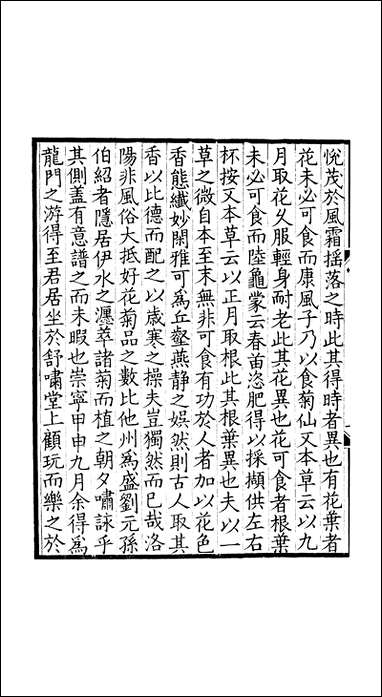 悅茂於風霜揺落之時此其得時者異也有花葉者
花未必可食而康風子乃以食菊仙又本草云以九
月取花久服輕身耐老此其花異也花可食者根葉
未必可食而陸龜蒙云春苗恣肥得以採擷供左右
杯按又本草云以正月取根此其根葉異也夫以一
草之微自本至末無非可食有功於人者加以花色
香態纖妙閑雅可為丘壑燕静之娱然則古人取其
香以比德而配之以歳寒之操夫豈獨然而已哉洛
陽非風俗大抵好花菊品之數比他州為盛劉元孫
伯紹者隱居伊水之瀍萃諸菊而植之朝夕嘯詠乎
其側盖有意譜之而未暇也崇寧甲申九月余得為
龍門之游得至君居坐於舒嘯堂上顧玩而樂之於